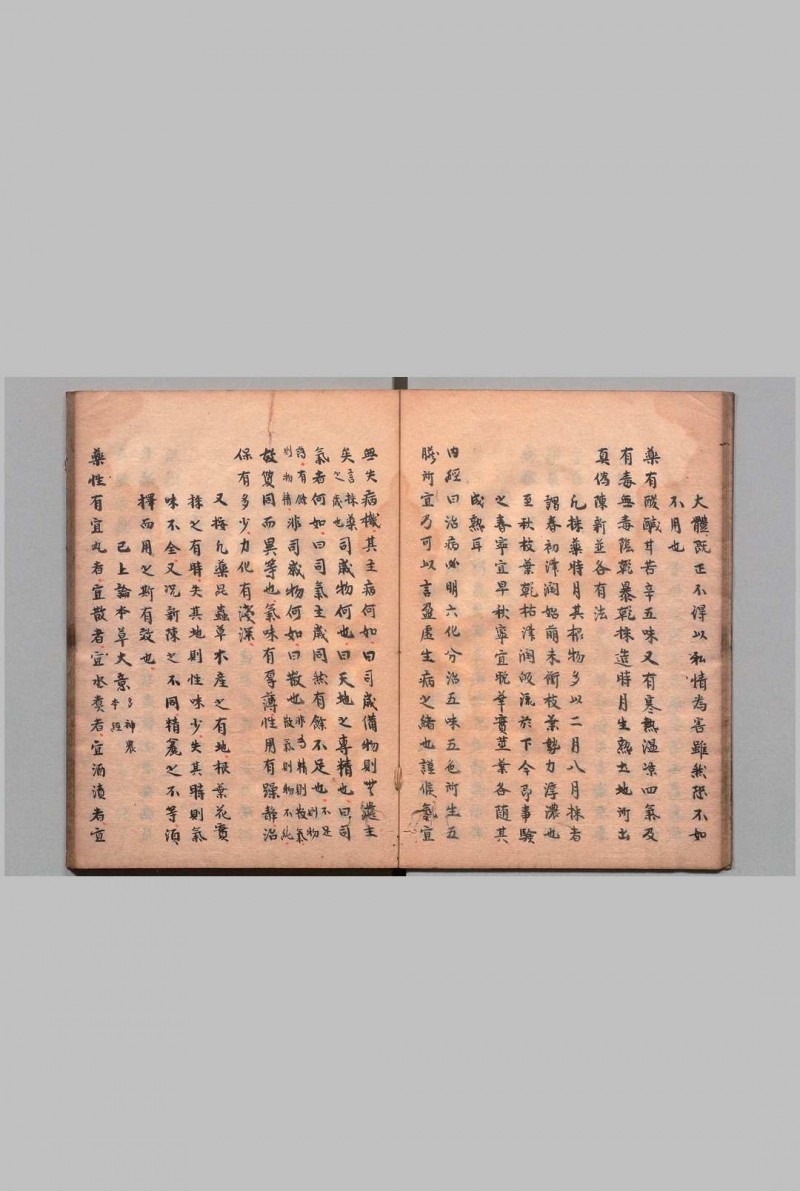 大體旣正不得以私情爲害雖然隱不如
不用也
藥有酸鹹甘苦辛五味又有寒熱溫涼四氣及
有毒無毒陰乾暴乾採造時月生熟土地所出
眞僞陳新並各有法
凡採藥時月其根物多以二月八月採者
謂春初津潤始萌未衝枝葉勢力淳濃也
至秋枝葉乾枯津潤皈流於下今卽事驗
之春寧宜早秋寧宜晩華實莖葉各隨其
成熟耳
內經曰治病必明六化分治五味五色所生五
臟所宜乃可以言盈虛生病之緖也謹候氣宜
無失病機其主病何如曰司歲備物則無遺主
矣言採藥之歲也司歲物何也曰天地之專精也曰司
氣者何如曰司氣主歲同然有餘不足也不足則物
薄有餘則物精非司歲物何如曰散也非專精則散氣散氣則物不純
故質同而異等也氣味有厚薄性用有躁靜治
保有多少力化有淺深
又按凡藥昆蟲草木產之有地根葉花實
採之有時失其地則性味少失其時則氣
味不全又況新陳之不同精麁之不等須
擇而用之斯有效也
已上論本草大意多神農本經
藥性有宜丸者宜散者宜水煑者宜酒漬者宜